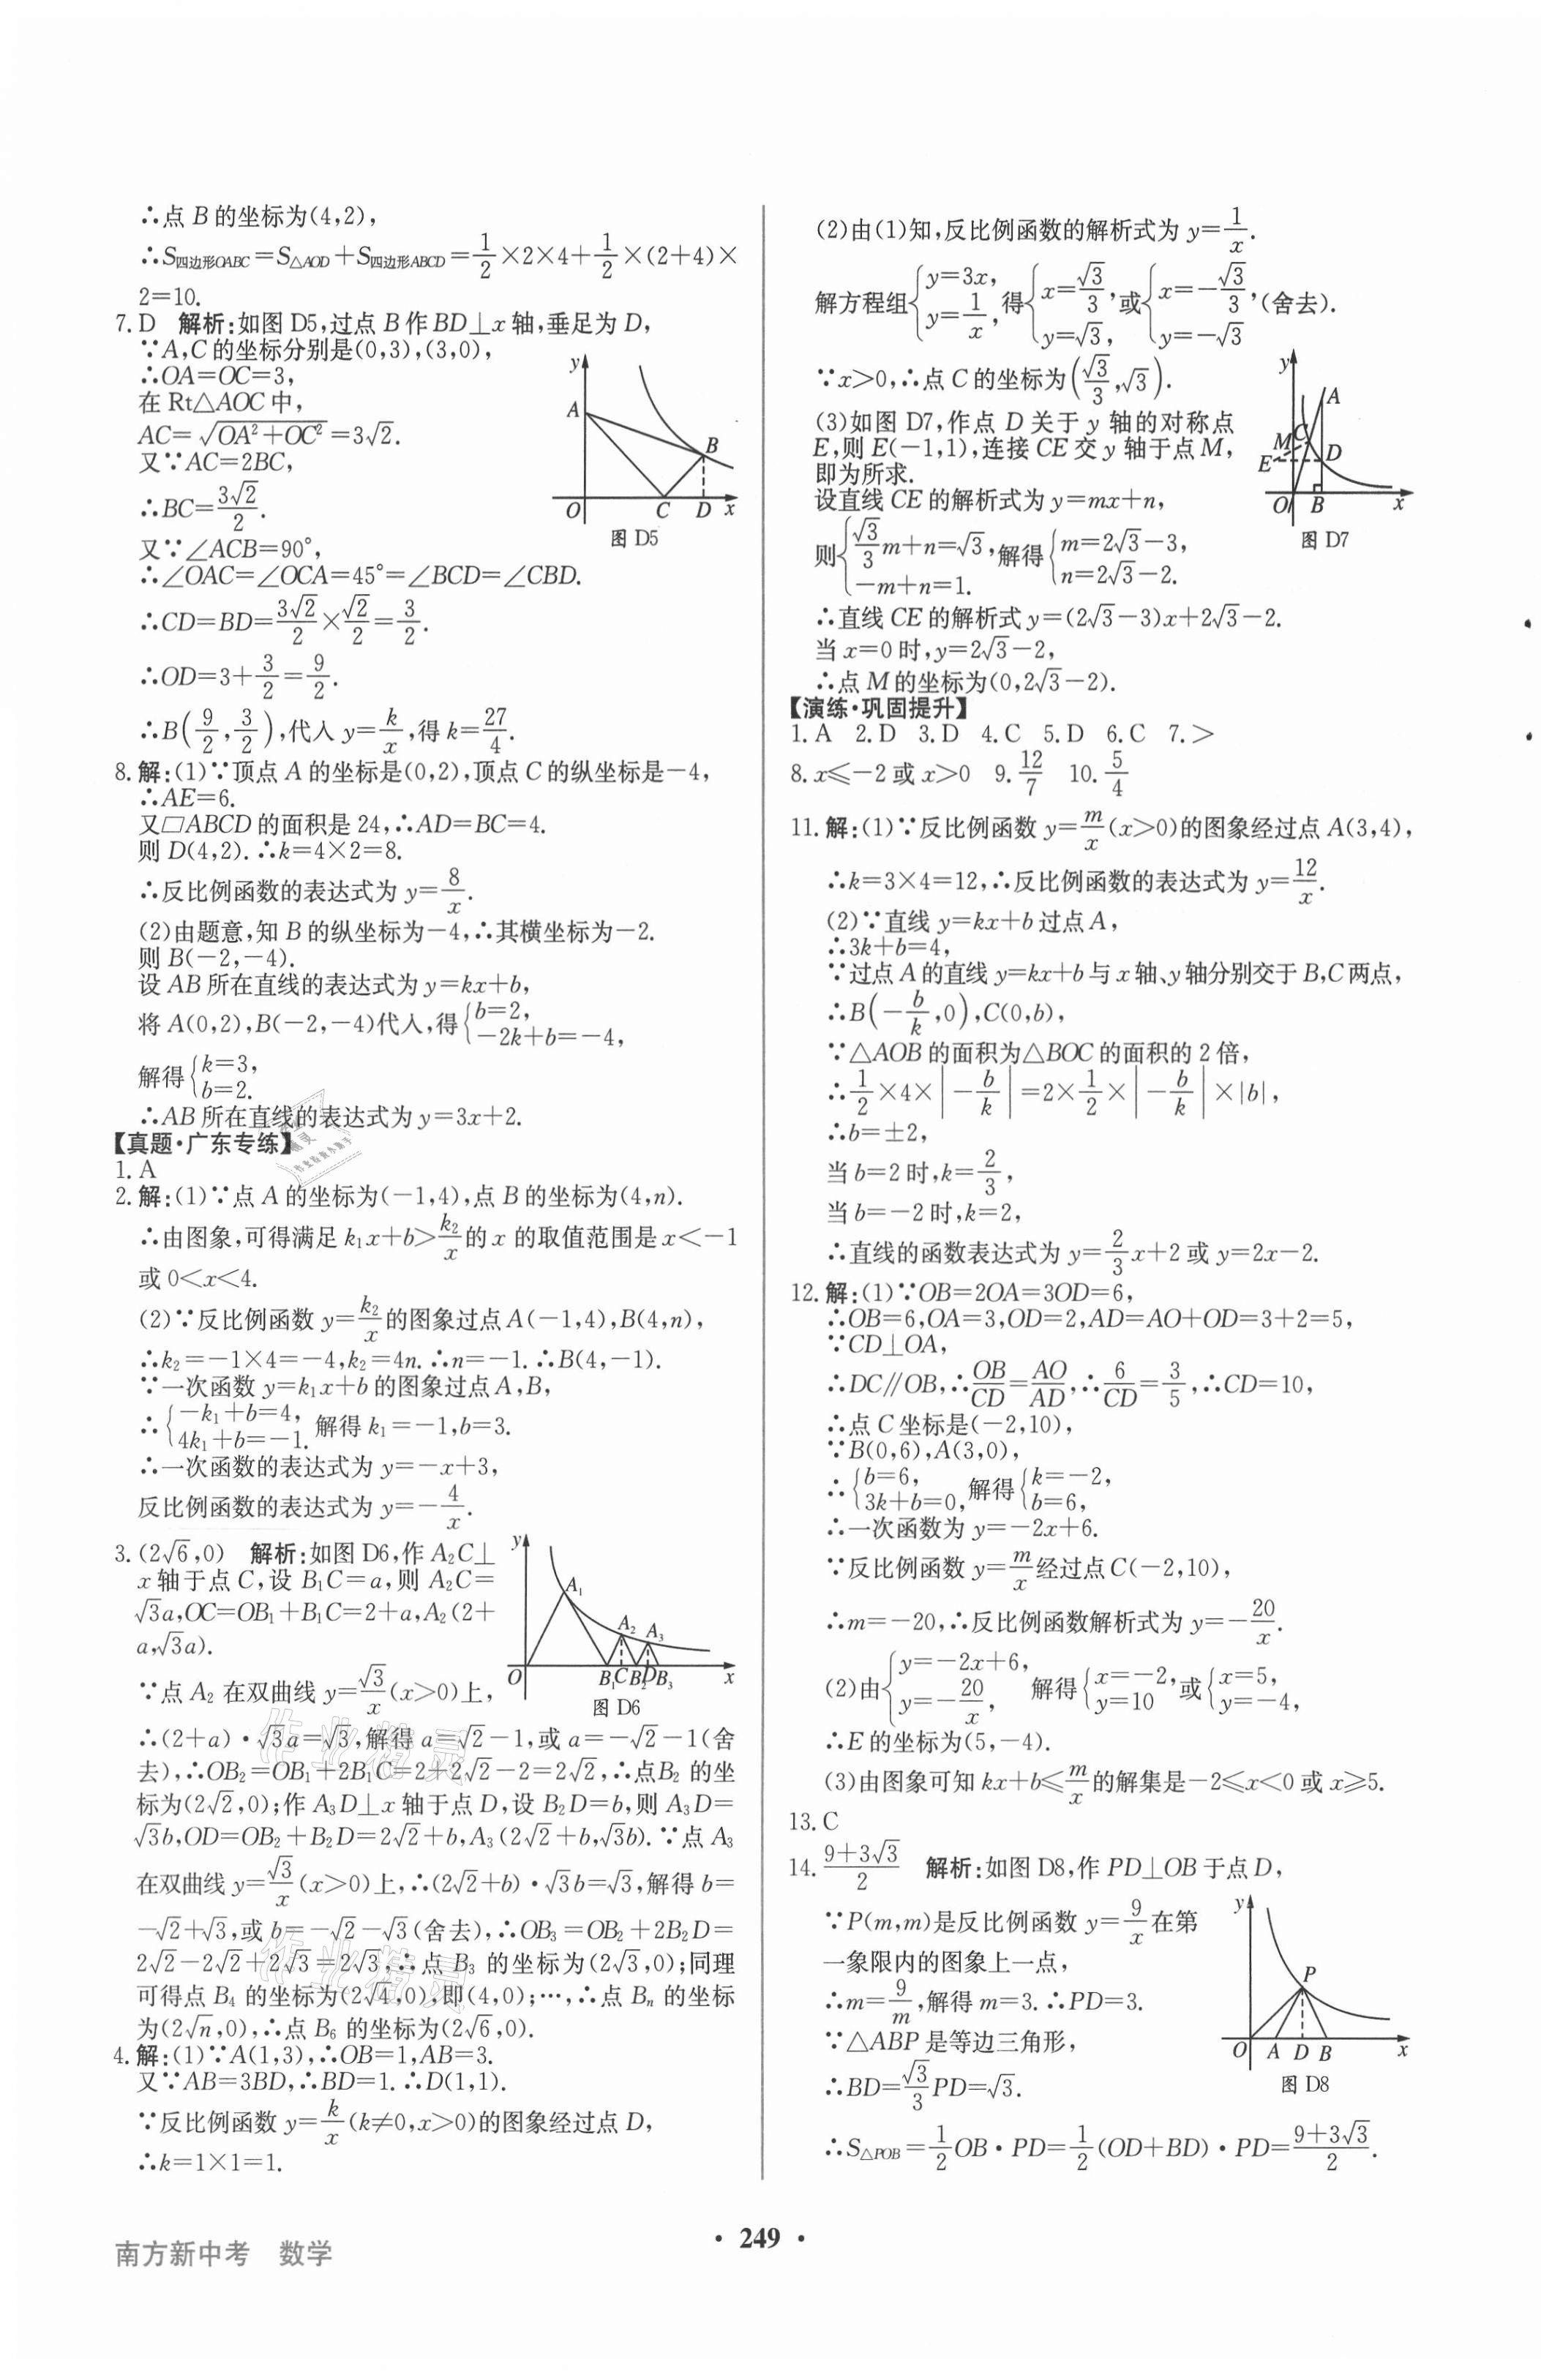 ∴点 B 的坐标为(4,2),
∴S四边形OABC=S△AOD+S四边形ABCD=1/2×2×4+1/2×(2+4)×
2=10.
7. D 解析:如图 D5,过点 B 作 BD⊥x 轴,垂足为 D,
∵A,C 的坐标分别是(0,3),(3,0),
∴OA=OC=3,
在 Rt△AOC 中,
AC=√(OA²+OC²)=3√2.
又∵AC=2BC,
∴BC=3√2/2.
又∵∠ACB=90°,
∴∠OAC=∠OCA=45°=∠BCD=∠CBD.
∴CD=BD=3√2/2×√2/2=3/2.
∴OD=3+3/2=9/2.
∴B(9/2,3/2),代入 y=k/x,得 k=27/4.
y
A
B
O
C
D
x
图 D5
8. 解:(1)∵顶点 A 的坐标是(0,2),顶点 C 的纵坐标是-4,
∴AE=6.
又▱ABCD 的面积是 24,∴AD=BC=4.
则 D(4,2).∴k=4×2=8.
∴反比例函数的表达式为 y=8/x.
(2)由题意,知 B 的纵坐标为-4,∴其横坐标为-2.
则 B(-2,-4).
设 AB 所在直线的表达式为 y=kx+b,
将 A(0,2),B(-2,-4)代入,得{b=2, -2k+b=-4,
解得{k=3, b=2.
∴AB 所在直线的表达式为 y=3x+2.
【真题·广东专练】
1. A
2. 解:(1)∵点 A 的坐标为(-1,4),点 B 的坐标为(4,n).
∴由图象,可得满足 k₁x+b>k₂/x 的 x 的取值范围是 x<-1
或 0<x<4.
(2)∵反比例函数 y=k₂/x 的图象过点 A(-1,4),B(4,n),
∴k₂=-1×4=-4,k₂=4n.∴n=-1.∴B(4,-1).
∵一次函数 y=k₁x+b 的图象过点 A,B,
∴{-k₁+b=4, 4k₁+b=-1. 解得 k₁=-1,b=3.
∴一次函数的表达式为 y=-x+3,
反比例函数的表达式为 y=-4/x.
3. (2√6,0) 解析:如图 D6,作 A₂C⊥
x 轴于点 C,设 B₁C=a,则 A₂C=
√3a,OC=OB₁+B₁C=2+a,A₂(2+
a,√3a).
∵点 A₂ 在双曲线 y=√3/x(x>0)上,
y
A₁
A₂
A₃
O
B₁
C
B₂
D
B₃
x
图 D6
∴(2+a)·√3a=√3,解得 a=√2-1,或 a=-√2-1(舍
去),∴OB₂=OB₁+2B₁C=2+2√2-2=2√2,∴点B₂ 的坐
标为(2√2,0);作 A₃D⊥x 轴于点 D,设 B₂D=b,则 A₃D=
√3b,OD=OB₂+B₂D=2√2+b,A₃(2√2+b,√3b).∵点 A₃
在双曲线 y=√3/x(x>0)上,∴(2√2+b)·√3b=√3,解得 b=
-√2+√3,或 b=-√2-√3(舍去),∴OB₃=OB₂+2B₂D=
2√2-2√2+2√3=2√3,∴点 B₃ 的坐标为(2√3,0);同理
可得点 B₄ 的坐标为(2√4,0),即(4,0);…,∴点 Bₙ 的坐标
为(2√n,0),∴点 B₆ 的坐标为(2√6,0).
4. 解:(1)∵A(1,3),∴OB=1,AB=3.
又∵AB=3BD,∴BD=1.∴D(1,1).
∵反比例函数 y=k/x(k≠0,x>0)的图象经过点 D,
∴k=1×1=1.
(2)由(1)知,反比例函数的解析式为 y=1/x.
解方程组{y=3x, y=1/x, 得{x=√3/3, y=√3, 或{x=-√3/3, y=-√3 (舍去).
∵x>0,∴点 C 的坐标为(√3/3,√3).
(3)如图 D7,作点 D 关于 y 轴的对称点
E,则 E(-1,1),连接 CE 交 y 轴于点 M,
即为所求.
设直线 CE 的解析式为 y=mx+n,
则{√3/3m+n=√3, -m+n=1. 解得{m=2√3-3, n=2√3-2.
y
A
C
M
E
D
O
B
x
图 D7
∴直线 CE 的解析式 y=(2√3-3)x+2√3-2.
当 x=0 时,y=2√3-2,
∴点 M 的坐标为(0,2√3-2).
【演练·巩固提升】
1. A 2. D 3. D 4. C 5. D 6. C 7. >
8. x≤-2 或 x>0 9. 12/7 10. 5/4
11. 解:(1)∵反比例函数 y=m/x(x>0)的图象经过点 A(3,4),
∴k=3×4=12,∴反比例函数的表达式为 y=12/x.
(2)∵直线 y=kx+b 过点 A,
∴3k+b=4,
∵过点 A 的直线 y=kx+b 与 x 轴、y 轴分别交于 B,C 两点,
∴B(-b/k,0),C(0,b),
∵△AOB 的面积为△BOC 的面积的 2 倍,
∴1/2×4×|-b/k|=2×1/2×|-b/k|×|b|,
∴b=±2,
当 b=2 时,k=2/3,
当 b=-2 时,k=2,
∴直线的函数表达式为 y=2/3x+2 或 y=2x-2.
12. 解:(1)∵OB=2OA=3OD=6,
∴OB=6,OA=3,OD=2,AD=AO+OD=3+2=5,
∵CD⊥OA,
∴DC∥OB,∴OB/CD=AO/AD,∴6/CD=3/5,∴CD=10,
∴点 C 坐标是(-2,10),
∵B(0,6),A(3,0),
∴{b=6, 3k+b=0, 解得{k=-2, b=6,
∴一次函数为 y=-2x+6.
∵反比例函数 y=m/x 经过点 C(-2,10),
∴m=-20,∴反比例函数解析式为 y=-20/x.
(2)由{y=-2x+6, y=-20/x, 解得{x=-2, y=10 或{x=5, y=-4,
∴E 的坐标为(5,-4).
(3)由图象可知 kx+b≤m/x 的解集是-2≤x<0 或 x≥5.
13. C
14. (9+3√3)/2 解析:如图 D8,作 PD⊥OB 于点 D,
∵P(m,m)是反比例函数 y=9/x 在第
一象限内的图象上一点,
∴m=9/m,解得 m=3.∴PD=3.
∵△ABP 是等边三角形,
∴BD=√3/3PD=√3.
∴S△POB=1/2OB·PD=1/2(OD+BD)·PD=(9+3√3)/2.
y
P
O
A
D
B
x
图 D8
南方新中考 数学
· 249 ·
作业精灵
作业精灵